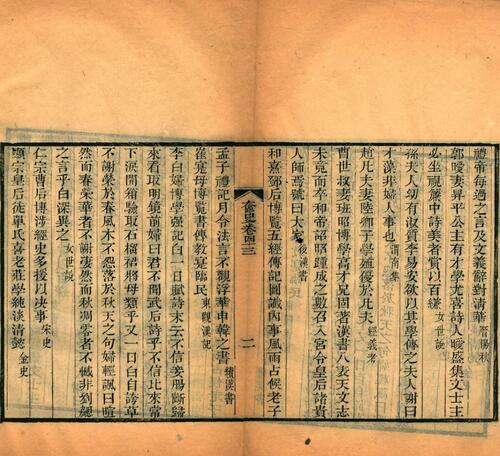 禮帝每過之言及文義辭對清華晉陽秋
郭曖妻昇平公主有才學尤喜詩人曖盛集文士主
必坐視簾中詩美者賞以百縑女世說
孫夫人幼有淑質李易安欲以其學傳之夫人謝曰
才藻非婦人事也渭南集
趙凡夫妻陸卿子學殖優於凡夫經義考
曹世叔妻班昭博學高才兄固著漢書八表天文志
未竟而卒和帝詔昭踵成之數召入宮令皇后諸貴
人師焉號曰大家後漢書
和熹鄧后博覽五經傳記圖讖內事風雨占候老子
卷四三
二
孟子禮記月令法言不觀浮華申韓之書續漢書
崔寔母博覽書傳教寔臨民東觀漢記
李白婦博學强記白一日賦詩末云不信妾腸斷歸
來看取明鏡前婦曰君不聞武后詩乎不信比來常
下淚開箱驗取石榴裙將毋類乎又一日白自誇草
不謝榮於春風木不怨落於秋天之句婦輕諷曰暄
然而春榮華者不謝凄然而秋凋零者不憾非到總
之言乎白深異之女世說
仁宗曹后博涉經史多援以決事宋史
顯宗皇后徒單氏喜老莊學純淡清懿金史